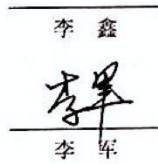 李 鑫
李军
李 军